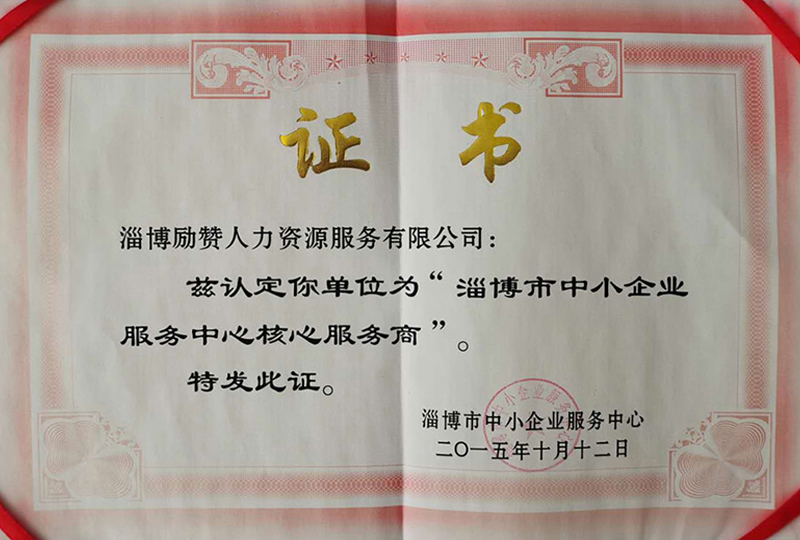 证书
淄博励赞人力资源服务有限公司：
兹认定你单位为“淄博市中小企业
服务中心核心服务商”。
特发此证。
淄博市中小企业服务中心
二〇一五年十月十二日